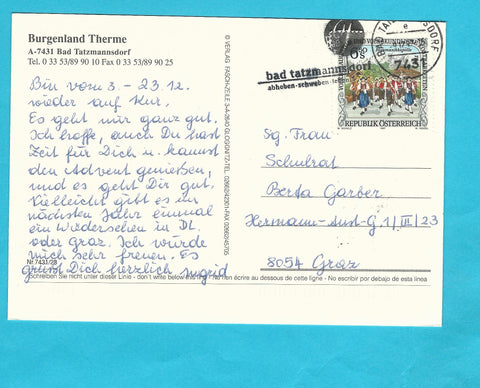 Burgenland Therme
A-7431 Bad Tatzmannsdorf
Tel. 0 33 53/89 90 10 Fax 0 33 53/89 90 25
Bin vom 3. - 23.12.
wieder auf Kur.
Es geht mir ganz gut.
Ich hoffe, auch Du hast
Zeit für Dich u. kannst
den Advent genießen,
und es geht Dir gut.
Vielleicht gibt es im
nächsten Jahr einmal
ein Wiedersehen in DL.
oder Graz. Ich würde
mich sehr freuen. Es
grüßt Dich herzlich Ingrid
Nr. 7431/28
Schreiben Sie nicht unter dieser Linie - don't write below this line - Ne rien écrire au dessous de cette ligne - No escribir por debajo de esta línea
© VERLAG
bad tatzmannsdorf
7431
REPUBLIK ÖSTERREICH
Sg. Frau
Schulrat
Berta Garber
8054 Graz